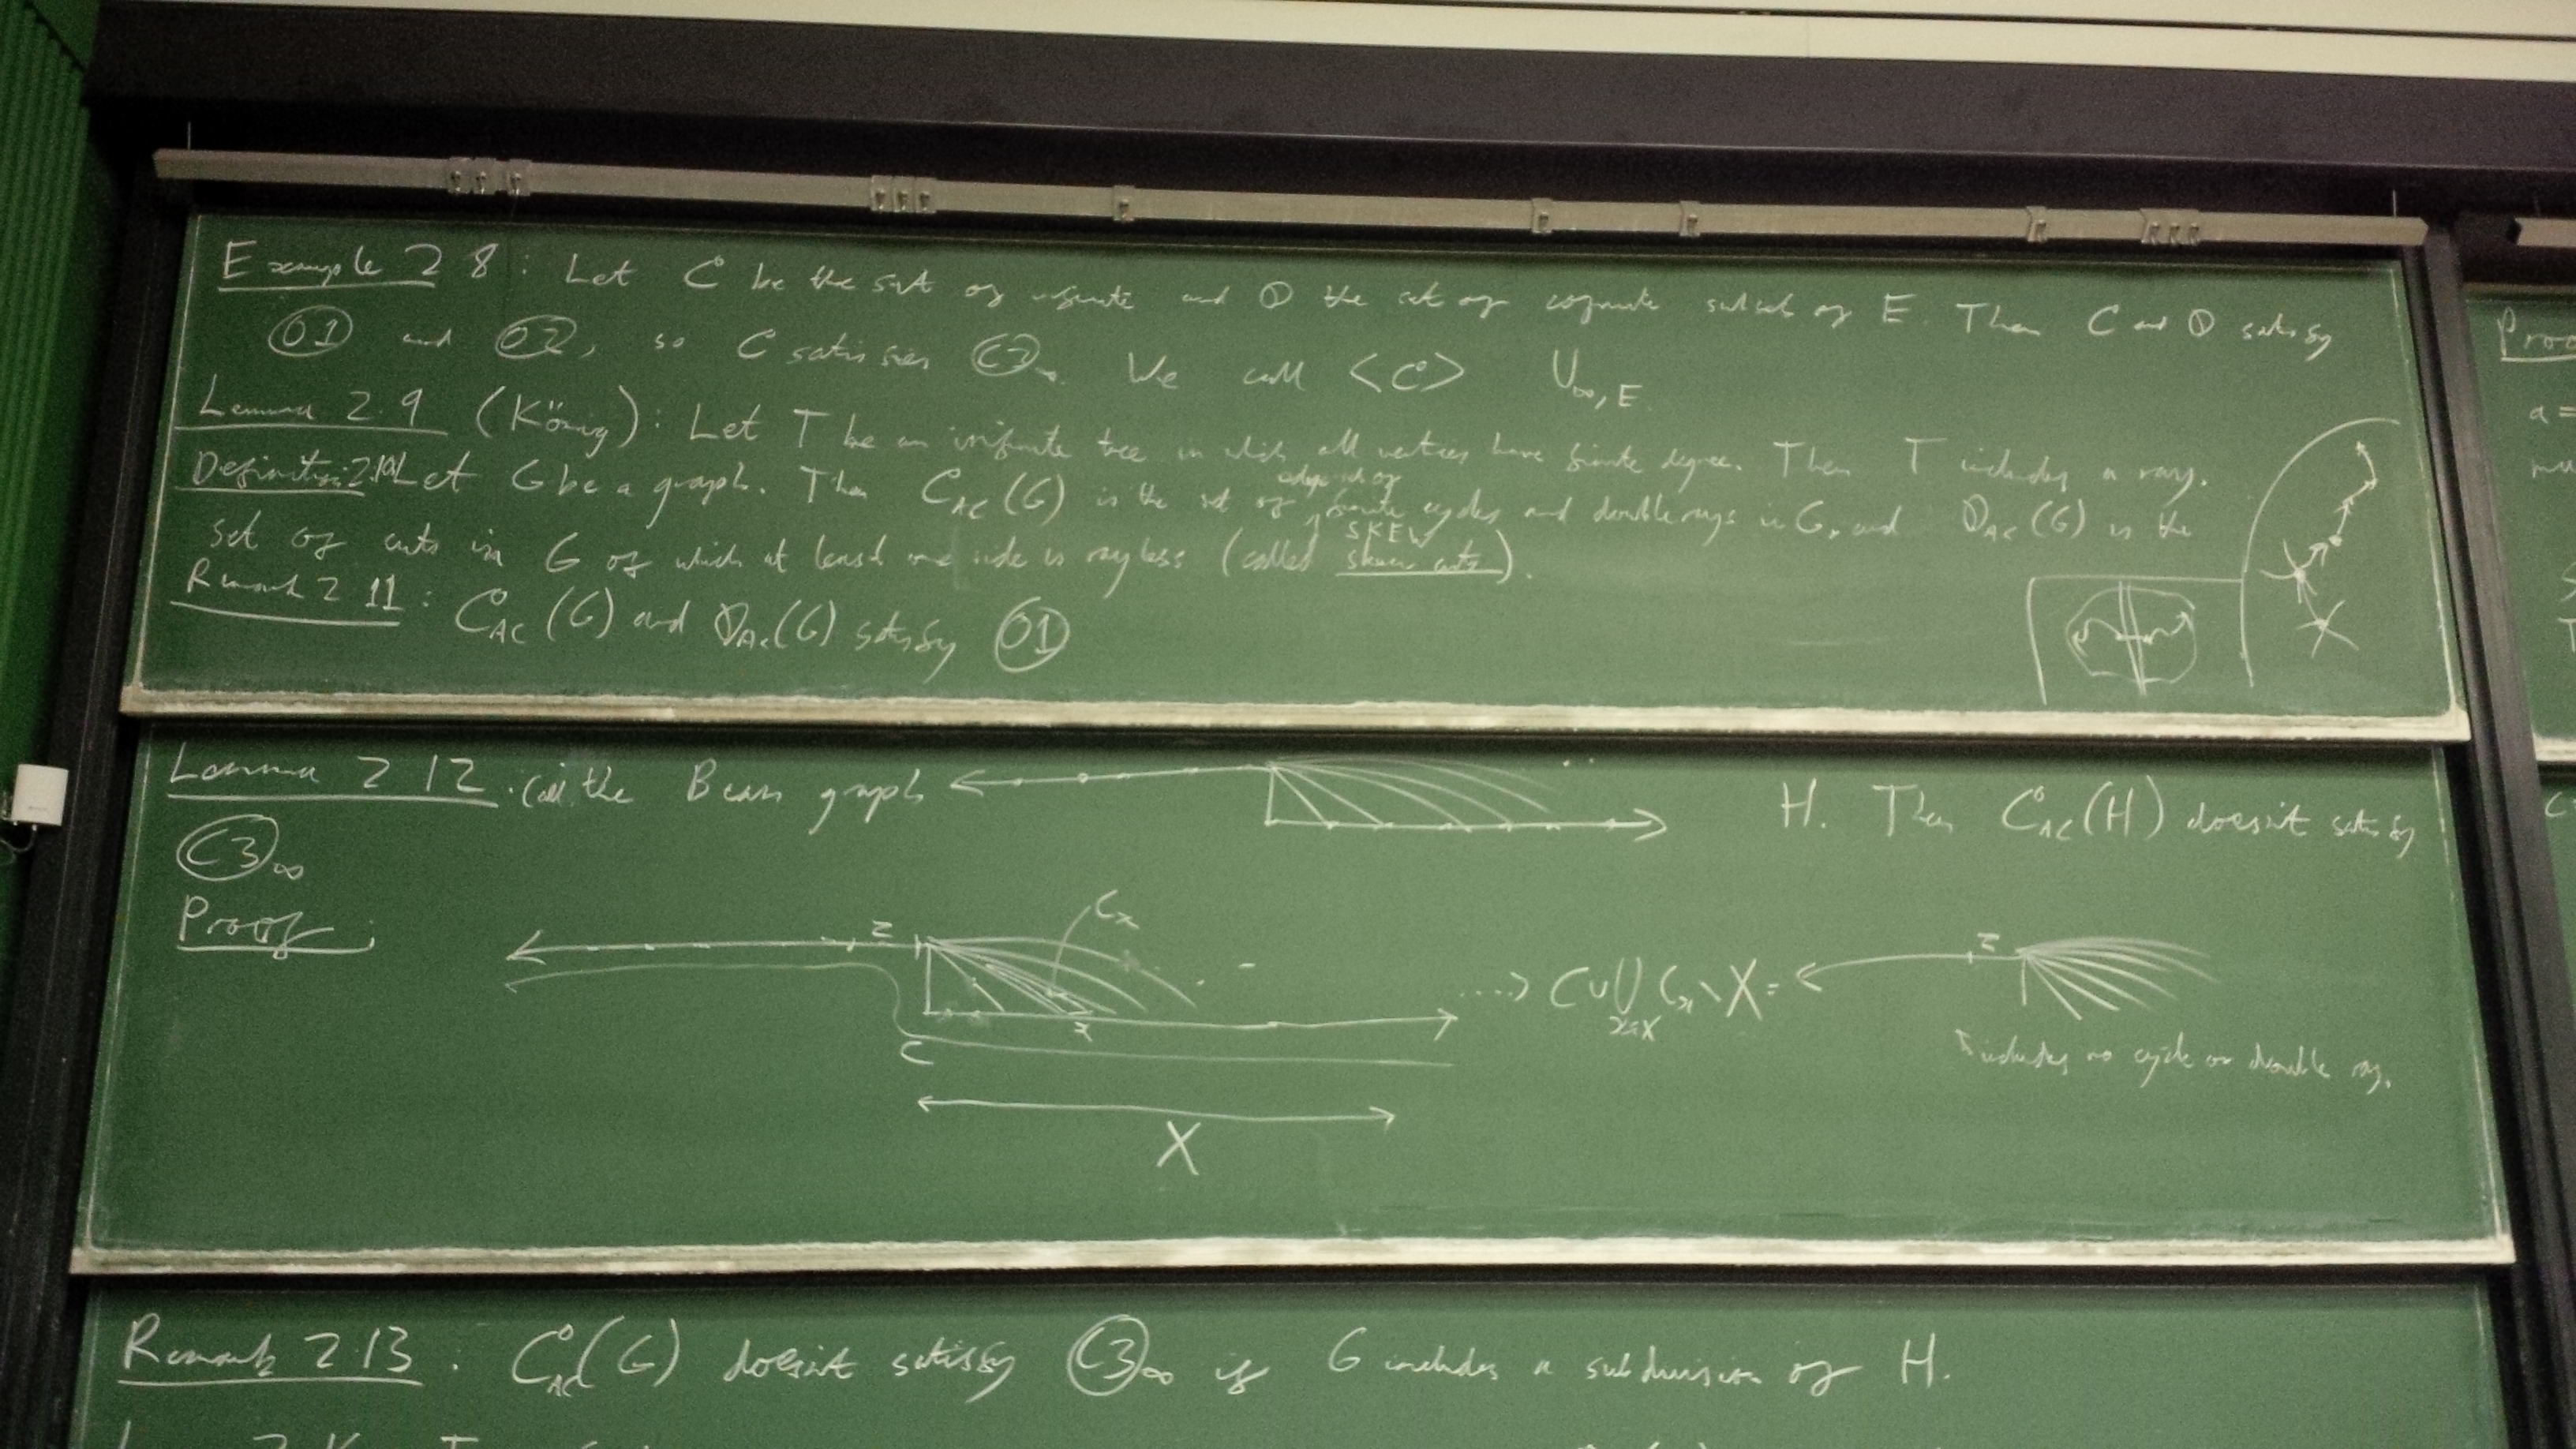 Example 2.8: Let C be the set of infinite and D the set of cofinite subsets of E. Then C and D satisfy
(O1) and (O2), so C satisfies (C3)∞. We call <C> U∞,E.
Lemma 2.9 (König): Let T be an infinite tree in which all vertices have finite degree. Then T includes a ray.
Definition 2.10: Let G be a graph. Then C_AC(G) is the set of edge sets of finite cycles and double rays in G, and D_AC(G) is the
SKEW
set of cuts in G of which at least one side is rayless (called skew cuts).
Remark 2.11: C_AC(G) and D_AC(G) satisfy (O1)
Lemma 2.12. Call the Bean graph H. Then C_AC(H) doesn't satisfy
(C3)∞
Proof:
z
C_x
x
C
X
....> C∪⋃ C_x \ X =
x∈X
z
includes no cycle or double ray.
Remark 2.13. C_AC(G) doesn't satisfy (C3)∞ if G includes a subdivision of H.
Proo
a =